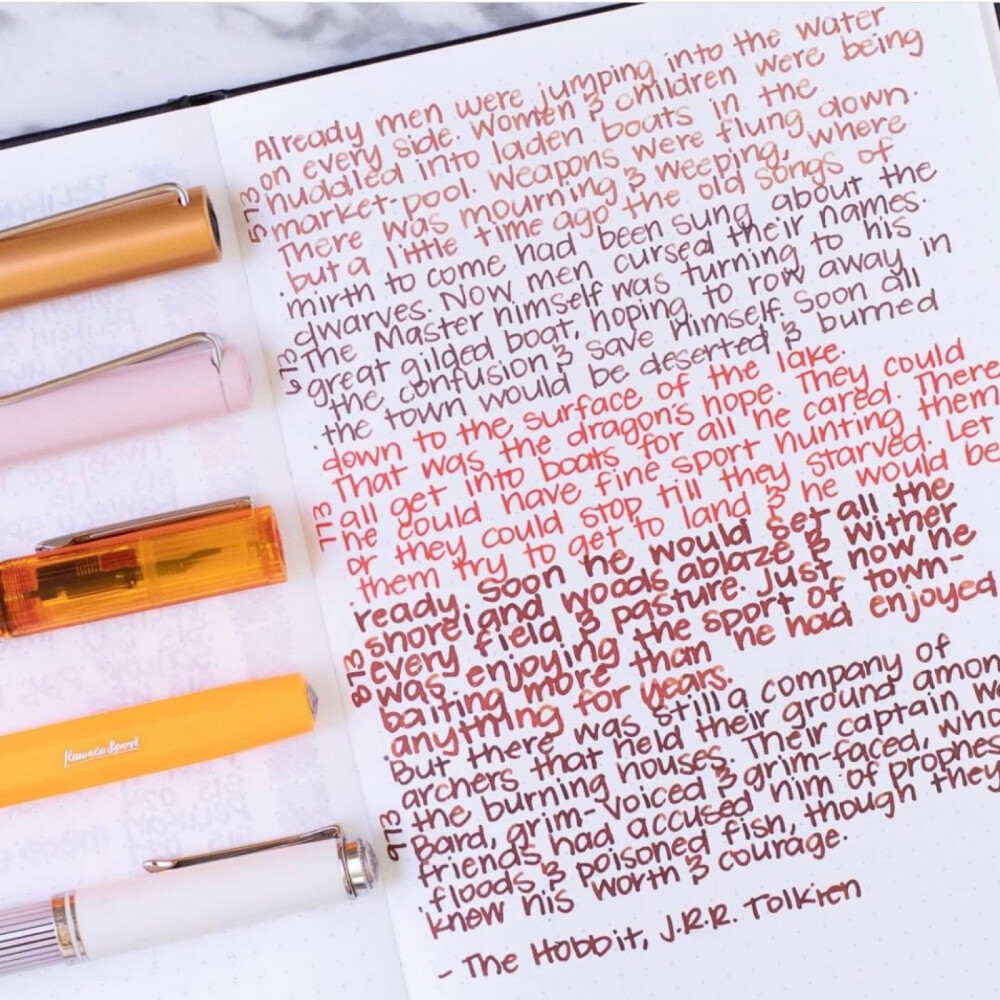 Already men were jumping into the water
on every side. Women & children were being
huddled into laden boats in the
market-pool. Weapons were flung down.
There was mourning & weeping, where
but a little time ago the old songs of
mirth to come had been sung about the
dwarves. Now men cursed their names.
The Master himself was turning to his
great gilded boat, hoping to row away in
the confusion & save himself. Soon all
the town would be deserted & burned
down to the surface of the lake.
That was the dragon's hope. They could
all get into boats for all he cared. There
he could have fine sport hunting them
or they could stop till they starved. Let
them try to get to land & he would be
ready. Soon he would set all the
shore and woods ablaze & wither
every field & pasture. Just now he
was enjoying the sport of town-
baiting more than he had enjoyed
anything for years.
But there was still a company of
archers that held their ground amon
the burning houses. Their captain w
Bard, grim-voiced & grim-faced, who
friends had accused him of prophes
floods & poisoned fish, though they
knew his worth & courage.
- The Hobbit, J.R.R. Tolkien
573
673
773
873
973
Kaweco Sport